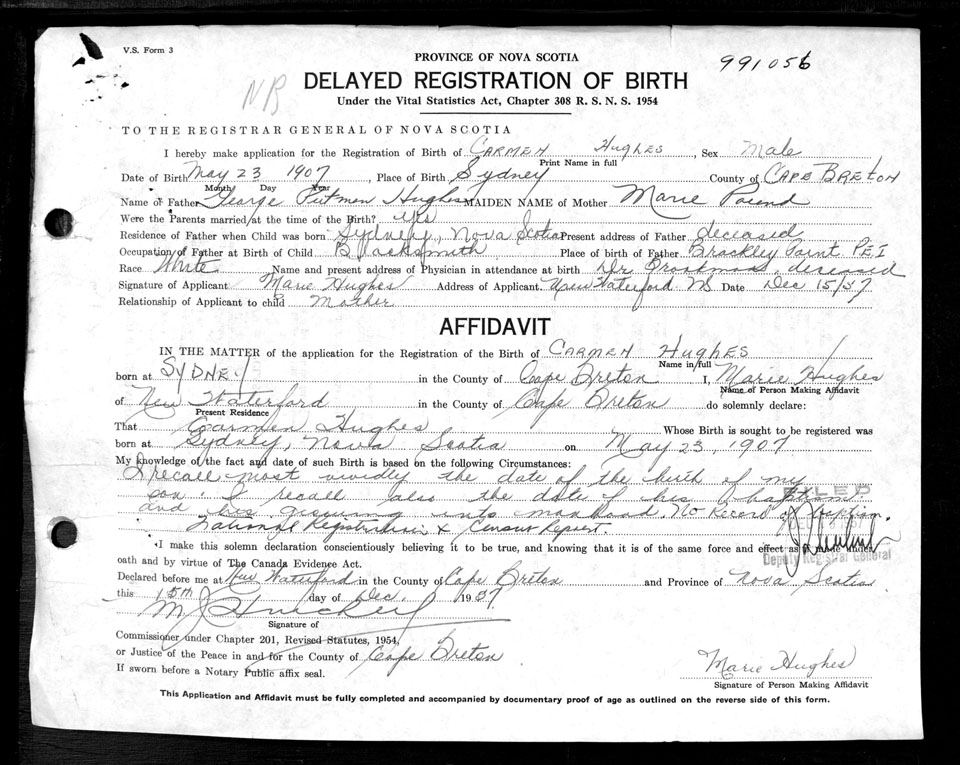 V.S. Form 3
PROVINCE OF NOVA SCOTIA
991056
DELAYED REGISTRATION OF BIRTH
NB
Under the Vital Statistics Act, Chapter 308 R. S. N. S. 1954
TO THE REGISTRAR GENERAL OF NOVA SCOTIA
I hereby make application for the Registration of Birth of CARMEN Hughes, Sex Male
Print Name in full
Date of Birth May 23 1907, Place of Birth Sydney County of CAPE BRETON
Month Day Year
Name of Father George Hughes MAIDEN NAME of Mother Marie
Were the Parents married at the time of the Birth? yes
Residence of Father when Child was born Sydney, Nova Scotia Present address of Father deceased
Occupation of Father at Birth of Child Blacksmith Place of birth of Father Brackley Point PEI
Race White Name and present address of Physician in attendance at birth Dr deceased
Signature of Applicant Marie Hughes Address of Applicant New Waterford NS Date Dec 15/57
Relationship of Applicant to child Mother
AFFIDAVIT
IN THE MATTER of the application for the Registration of the Birth of CARMEN Hughes
Name in full
born at SYDNEY in the County of Cape Breton I, Marie Hughes
Name of Person Making Affidavit
of New Waterford in the County of Cape Breton do solemnly declare:
Present Residence
That Carmen Hughes Whose Birth is sought to be registered was
born at Sydney, Nova Scotia on May 23, 1907
My knowledge of the fact and date of such Birth is based on the following Circumstances:
I recall most vividly the date of the birth of my
son. I recall also the date of his baptism
FILED
and his into manhood. No Record of Baption.
National Registration & Census Report.
I make this solemn declaration conscientiously believing it to be true, and knowing that it is of the same force and effect as if made under
Deputy Registrar General
oath and by virtue of The Canada Evidence Act.
Declared before me at New Waterford in the County of Cape Breton and Province of Nova Scotia
this 15th day of Dec. 1957
Signature of
Commissioner under Chapter 201, Revised Statutes, 1954,
or Justice of the Peace in and for the County of Cape Breton
If sworn before a Notary Public affix seal.
Marie Hughes
Signature of Person Making Affidavit
This Application and Affidavit must be fully completed and accompanied by documentary proof of age as outlined on the reverse side of this form.